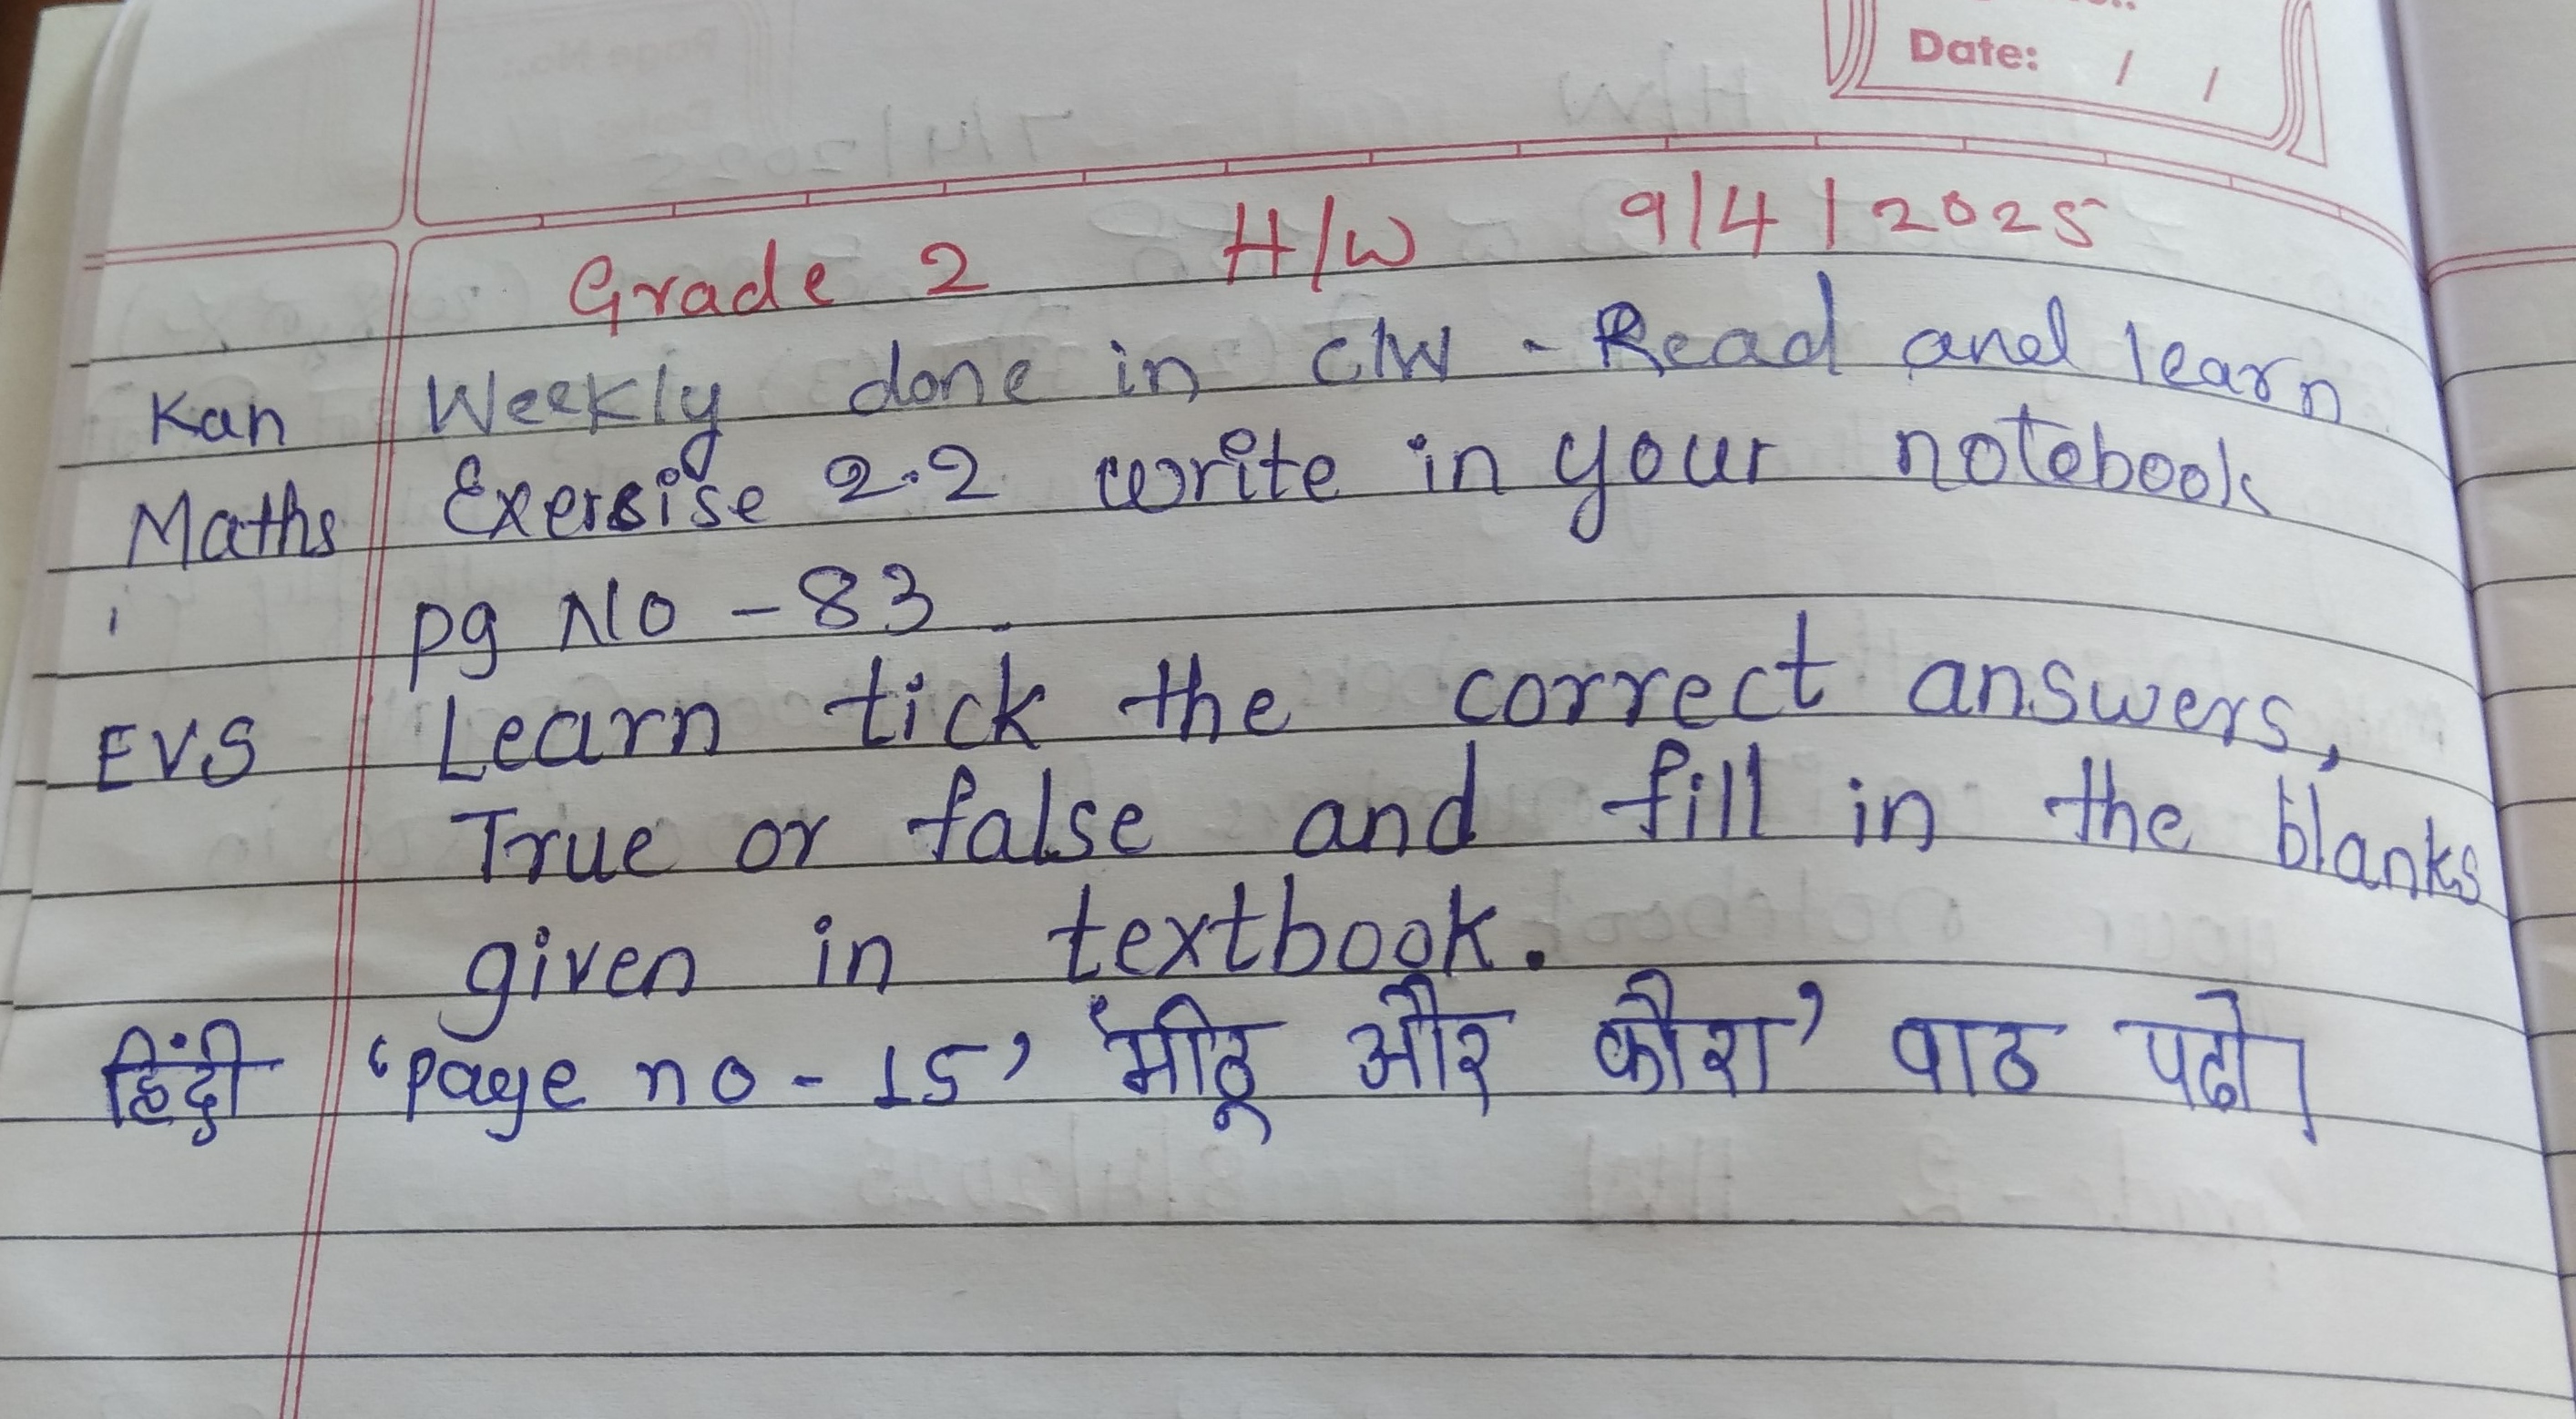 Date: / /
Grade 2 H/W 9/4/2025
Kan Weekly done in C/W - Read and learn
Maths Exersise 2.2 write in your notebook
pg No - 83
EVS Learn tick the correct answers,
True or false and fill in the blanks
given in textbook.
हिंदी 'page no - 15' 'मीठू और कौरा' पाठ पढो।